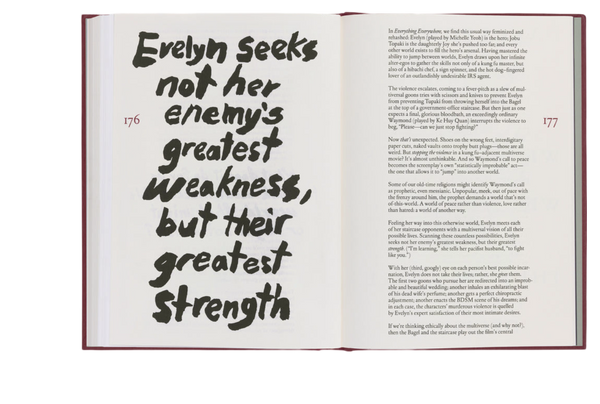 Evelyn seeks
not her
enemy's
greatest
weakness,
but their
greatest
strength
176
177
In Everything Everywhere, we find this usual way feminized and
rehashed: Evelyn (played by Michelle Yeoh) is the hero; Jobu
Tupaki is the daughterly Joy she's pushed too far; and every
other world exists to fill the hero's arsenal. Having mastered the
ability to jump between worlds, Evelyn draws upon her infinite
alter-egos to gather the skills not only of a kung fu master, but
also of a hibachi chef, a sign spinner, and the hot dog-fingered
lover of an outlandishly undesirable IRS agent.
The violence escalates, coming to a fever-pitch as a slew of mul-
tiversal goons tries with scissors and knives to prevent Evelyn
from preventing Tupaki from throwing herself into the Bagel
at the top of a government-office staircase. But then just as one
expects a final, glorious bloodbath, an exceedingly ordinary
Waymond (played by Ke Huy Quan) interrupts the violence to
beg, "Please—can we just stop fighting?"
Now that's unexpected. Shoes on the wrong feet, interdigitary
paper cuts, naked-vaults onto trophy butt plugs—those are all
weird. But stopping the violence in a kung fu-adjacent multiverse
movie? It's almost unthinkable. And so Waymond's call to peace
becomes the screenplay's own "statistically improbable" act—
the one that allows it to "jump" into another world.
Some of our old-time religions might identify Waymond's call
as prophetic, even messianic. Unpopular, meek, out of pace with
the frenzy around him, the prophet demands a world that's not
of-this-world. A world of peace rather than violence, love rather
than hatred: a world of another way.
Feeling her way into this otherwise world, Evelyn meets each
of her staircase opponents with a multiversal vision of all their
possible lives. Scanning these countless possibilities, Evelyn
seeks not her enemy's greatest weakness, but their greatest
strength. ("I'm learning," she tells her pacifist husband, "to fight
like you.")
With her (third, googly) eye on each person's best possible incar-
nation, Evelyn does not take their lives; rather, she gives them.
The first two goons who pursue her are redirected into an improb-
able and beautiful wedding; another inhales an exhilarating blast
of his dead wife's perfume; another gets a perfect chiropractic
adjustment; another enacts the BDSM scene of his dreams; and
in each case, the characters' murderous violence is quelled
by Evelyn's expert satisfaction of their most intimate desires.
If we're thinking ethically about the multiverse (and why not?),
then the Bagel and the staircase play out the film's central